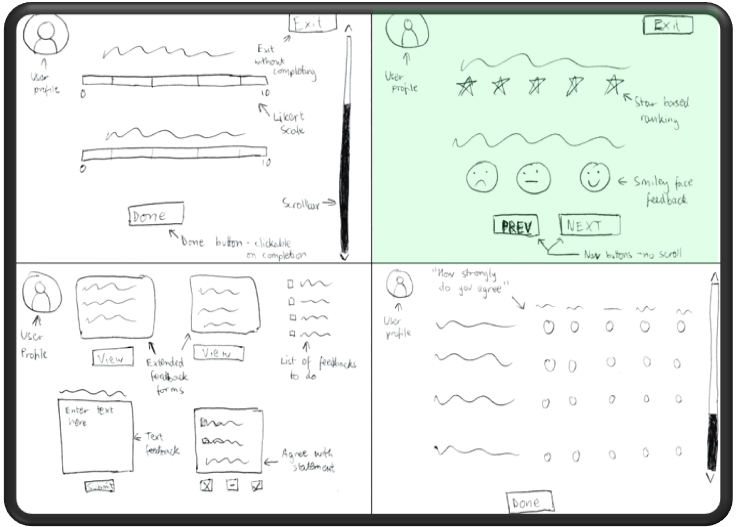 Exit
User
profile
Exit
without
completing
0
10
Likert
Scale
0
10
Scrollbar
Done
Done button - clickable
on completion
Exit
User
profile
Star based
ranking
Smiley face
feedback
PREV
NEXT
Nav buttons - no scroll
User
Profile
View
View
Extended
feedback
forms
List of feedbacks
to do
Enter text
here
Text
feedback
Submit
Agree with
statement
"How strongly
do you agree"
User
profile
Done